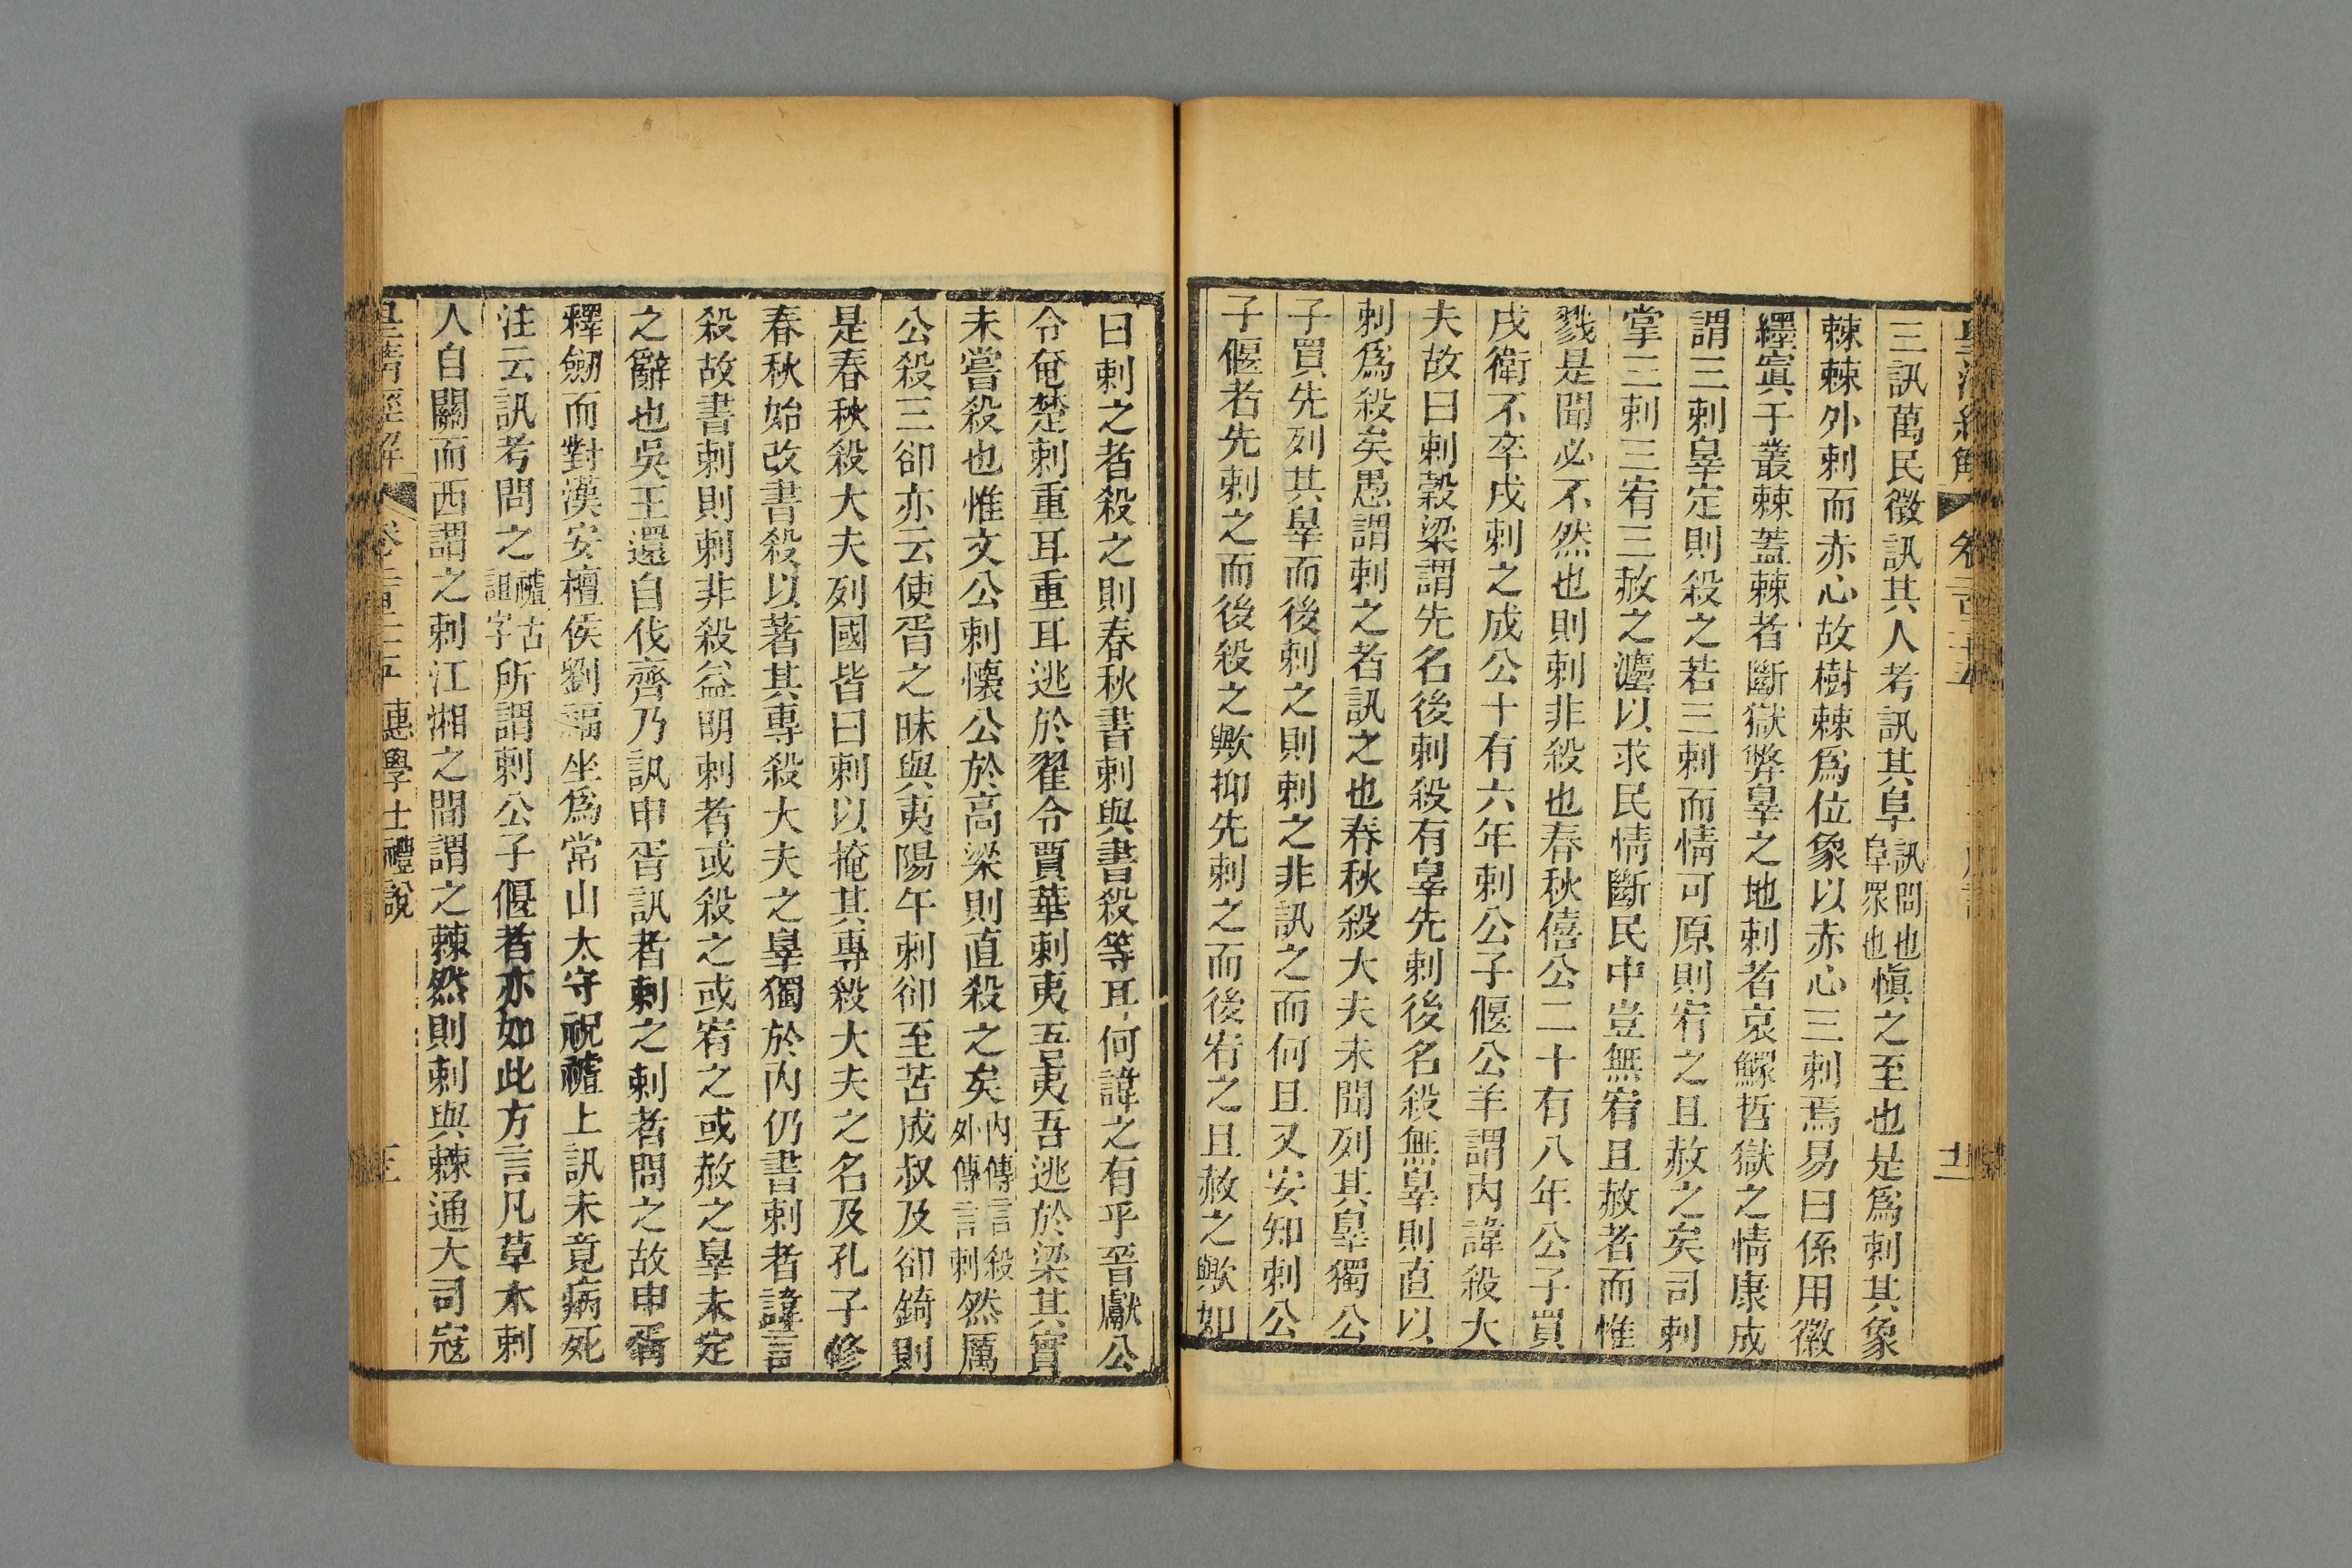 三訊萬民徵訊其人考訊其阜訊問也阜眾也愼之至也是爲刺其象
棘棘外刺而赤心故樹棘爲位象以赤心三刺焉易曰係用徽
纆寘于叢棘蓋棘者斷獄弊辠之地刺者哀鰥哲獄之情康成
謂三刺辠定則殺之若三刺而情可原則宥之且赦之矣司刺
掌三刺三宥三赦之灋以求民情斷民中豈無宥且赦者而惟
戮是聞必不然也則刺非殺也春秋僖公二十有八年公子買
戍衛不卒戍刺之成公十有六年刺公子偃公羊謂內諱殺大
夫故曰刺穀梁謂先名後刺殺有辠先刺後名殺無辠則直以
刺爲殺矣愚謂刺之者訊之也春秋殺大夫未聞列其辠獨公
子買先列其辠而後刺之則刺之非訊之而何且又安知刺公
子偃者先刺之而後殺之歟抑先刺之而後宥之且赦之歟如
曰刺之者殺之則春秋書刺與書殺等耳何諱之有乎晉獻公
令奄楚刺重耳重耳逃於翟令賈華刺夷吾夷吾逃於梁其實
未嘗殺也惟文公刺懷公於高梁則直殺之矣內傳言殺外傳言刺然厲
公殺三郤亦云使胥之昧與夷陽午刺郤至苦成叔及郤錡則
是春秋殺大夫列國皆曰刺以掩其專殺大夫之名及孔子修
春秋始改書殺以著其專殺大夫之辠獨於內仍書刺者諱言
殺故書刺則刺非殺益明刺者或殺之或宥之或赦之辠未定
之辭也吳王還自伐齊乃訊申胥訊者刺之刺者問之故申胥
釋劒而對漢安檀侯劉福坐爲常山太守祝禮上訊未竟病死
注云訊考問之禮古詛字所謂刺公子偃者亦如此方言凡草木刺
人自關而西謂之刺江湘之間謂之棘然則刺與棘通大司寇
皇清經解 卷二百二十五 惠學士禮說